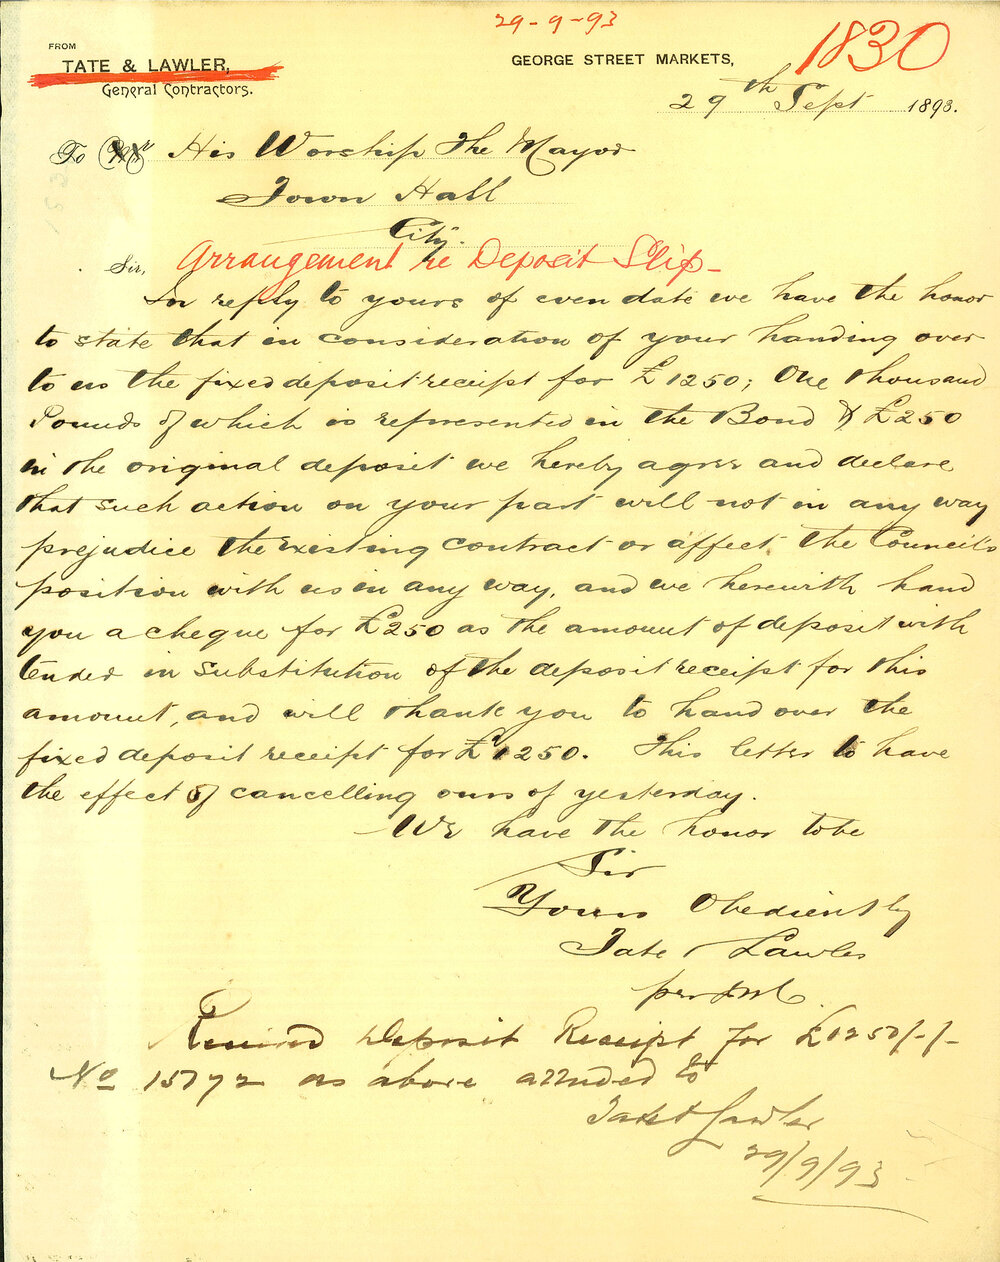 29-9-93
1830
FROM
TATE & LAWLER,
General Contractors.
GEORGE STREET MARKETS,
29th Sept 1893.
To His Worship The Mayor
Town Hall
City.
Sir, Arrangement re Deposit Slip-
In reply to yours of even date we have the honor
to state that in consideration of your handing over
to us the fixed deposit receipt for £1250; One thousand
Pounds of which is represented in the Bond & £250
in the original deposit we hereby agree and declare
that such action on your part will not in any way
prejudice the existing contract or affect the Council's
position with us in any way, and we herewith hand
you a cheque for £250 as the amount of deposit with
tender in substitution of the deposit receipt for this
amount, and will thank you to hand over the
fixed deposit receipt for £1250. This letter to have
the effect of cancelling ours of yesterday.
We have the honor to be
Sir
Yours Obediently
Tate & Lawler
per
Received Deposit Receipt for £1250/-/-
No 15772 as above attended to
Tate & Lawler
29/9/93